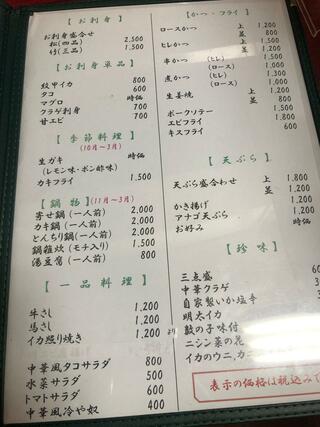 【お刺身】
お刺身盛合せ
松(四品) 2,500
竹(三品) 1,500
【お刺身単品】
紋甲イカ 800
タコ 600
マグロ 時価
クラゲ刺身 700
甘エビ 700
【季節料理】
(10月〜3月)
生ガキ 時価
(レモン味・ポン酢味)
カキフライ 1,500
【鍋物】(11月〜3月)
寄せ鍋(一人前) 2,000
カキ鍋(一人前) 2,000
とんちり鍋(一人前) 2,000
鍋雑炊(モチ入り) 1,500
湯豆腐(一人前) 800
【一品料理】
牛さし 1,200
馬さし 1,200
イカ照り焼き 1,200より
中華風タコサラダ 800
水菜サラダ 500
トマトサラダ 600
中華風冷や奴 400
【かつ・フライ】
ロースかつ 上 1,200
並 800
ヒレかつ 上 1,200
並 800
串かつ (ヒレ) 1,500
(ロース) 1,000
煮かつ (ヒレ) 1,500
(ロース) 1,000
生姜焼 上 1,200
並 800
ポークソテー 1,200
エビフライ 1,800
キスフライ 600
【天ぷら】
天ぷら盛合わせ 上 1,800
並 1,200
かき揚げ 1,200
アナゴ天ぷら 1,200
お好み 時価
【珍味】
三点盛 60
中華クラゲ
自家製いか塩辛
明太イカ
数の子味付
ニシン菜の花
イカのウニ、カニ
表示の価格は税込みで